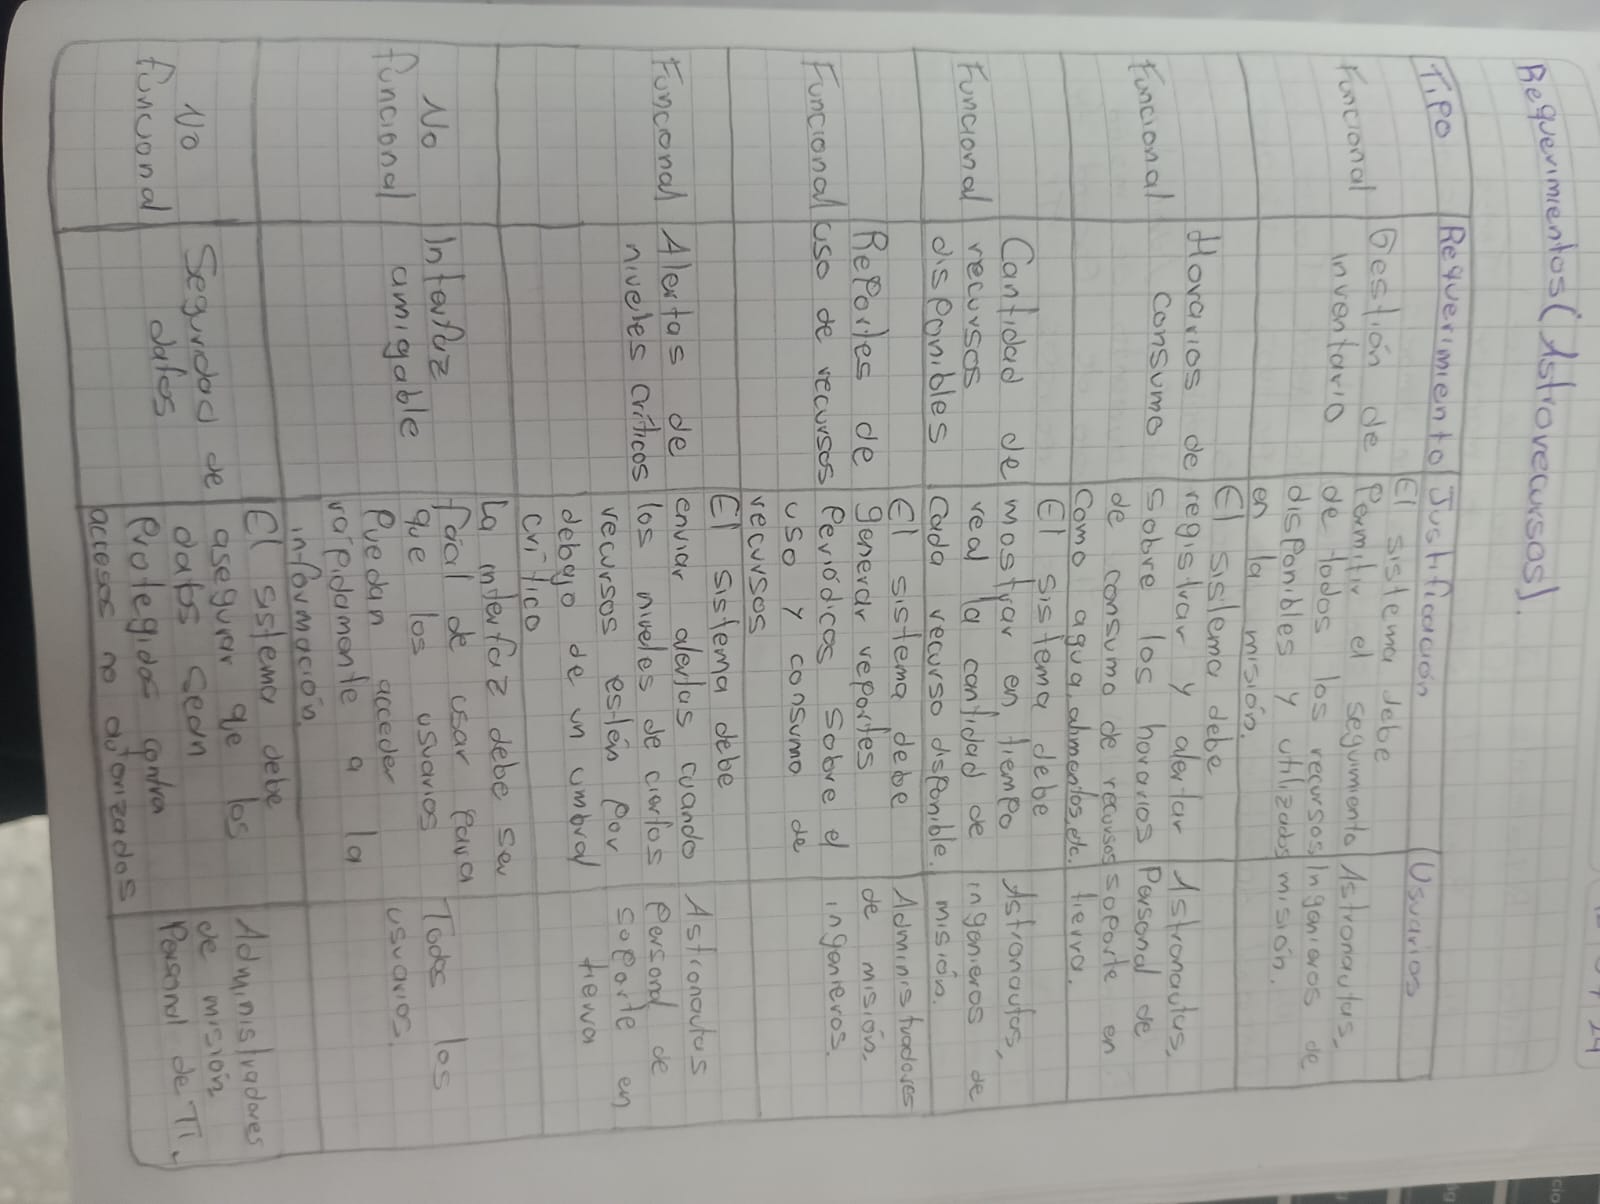 Requerimientos (Astrorecursos).
Tipo Requerimiento Justificación Usuarios
Funcional
Gestión de
inventario
El sistema debe
Permitir el seguimiento
de todos los recursos
disponibles y utilizados
en la misión.
Astronautas,
Ingenieros de
misión.
Funcional
Horarios de
consumo
El sistema debe
registrar y alertar
sobre los horarios
de consumo de recursos
como agua, alimentos, etc.
Astronautas,
Personal de
soporte en
tierra.
Funcional
Cantidad de
recursos
disponibles
El sistema debe
mostrar en tiempo
real la cantidad de
cada recurso disponible.
Astronautas,
ingenieros de
misión.
Funcional
Reportes de
uso de recursos
El sistema debe
generar reportes
Periódicos sobre el
uso y consumo de
recursos
Administradores
de misión,
ingenieros.
Funcional
Alertas de
niveles críticos
El sistema debe
enviar alertas cuando
los niveles de ciertos
recursos estén por
debajo de un umbral
crítico
Astronautas
Personal de
soporte en
tierra
No
funcional
Interfaz
amigable
La interfaz debe ser
fácil de usar para
que los usuarios
Puedan acceder
rápidamente a la
información.
Todos los
usuarios.
No
funcional
Seguridad de
datos
El sistema debe
asegurar que los
datos sean
Protegidos contra
accesos no autorizados
Administradores
de misión
Personal de TI.